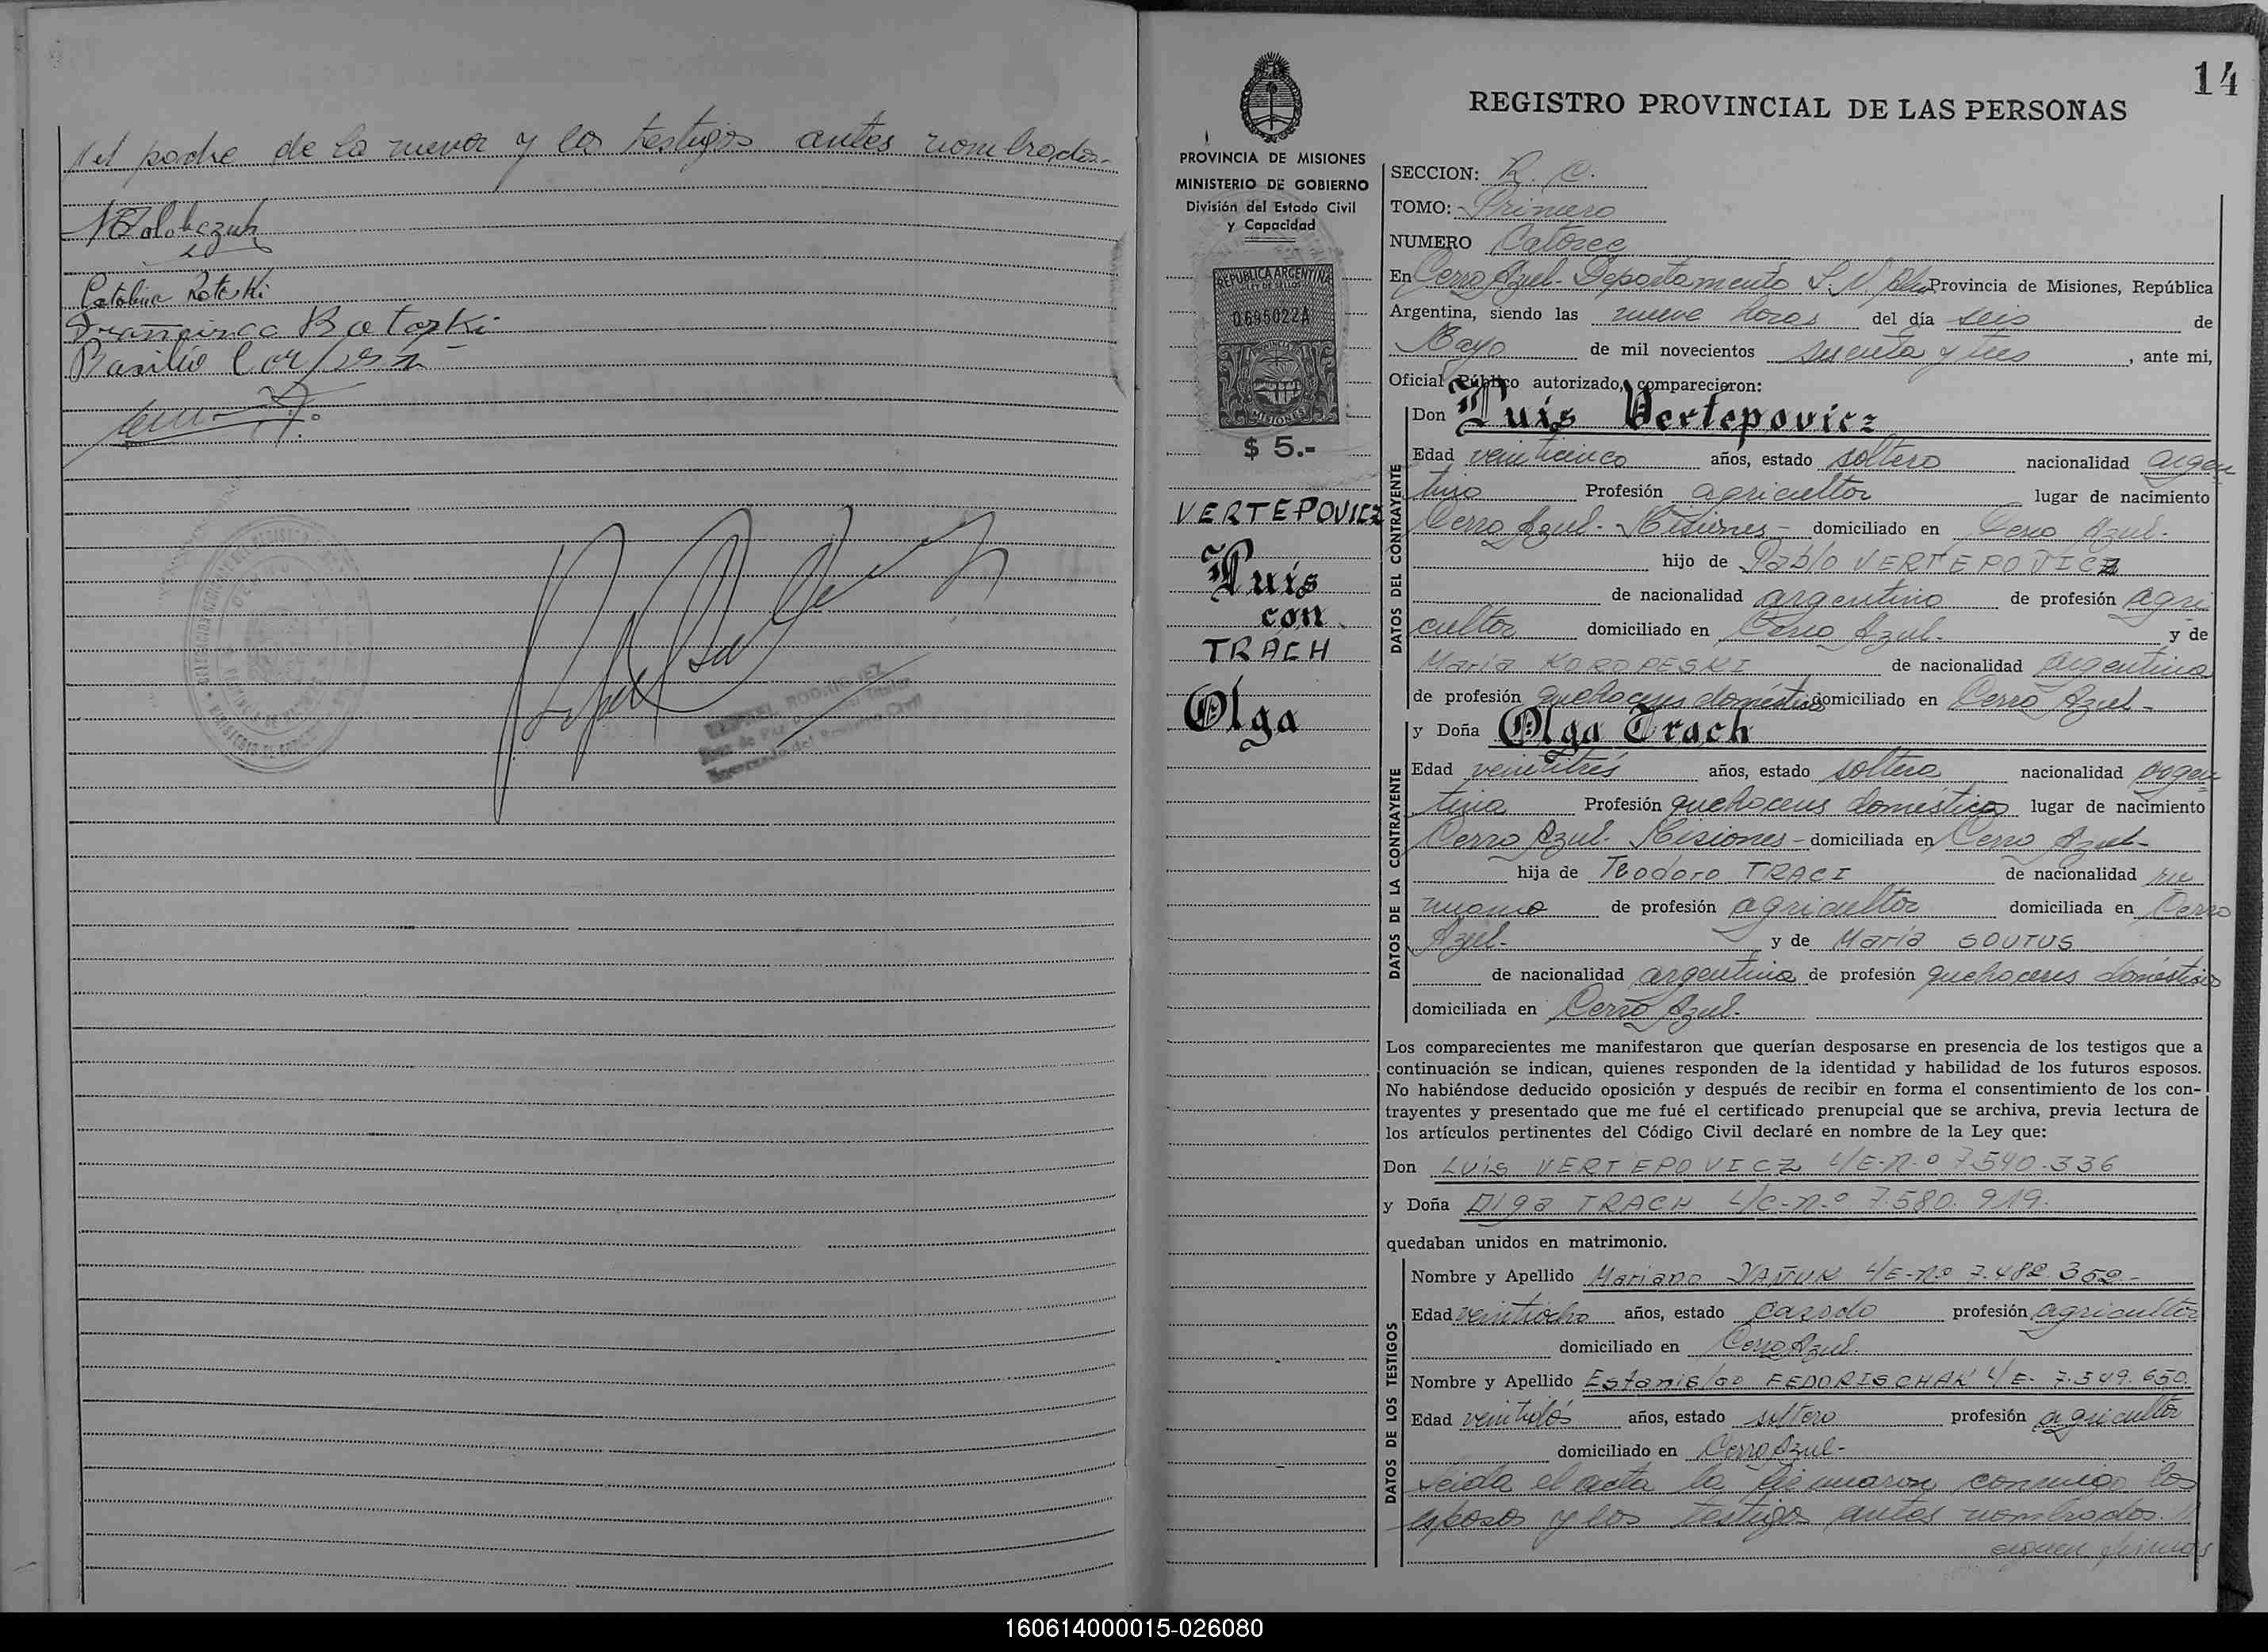 el padre de la menor y los testigos antes nombrados.-
Catalina Rotoski
Francisca Batoski
Basilio
14
REGISTRO PROVINCIAL DE LAS PERSONAS
PROVINCIA DE MISIONES
MINISTERIO DE GOBIERNO
División del Estado Civil
y Capacidad
REPUBLICA ARGENTINA
LEY DE SELLOS
0695022A
MISIONES
$ 5.-
VERTEPOVICZ
Luis
con
TRACH
Olga
SECCION: R. C.
TOMO: Primero
NUMERO Catorce
En Cerro Azul - Departamento L. N. Alem Provincia de Misiones, República
Argentina, siendo las nueve horas del día seis de
Mayo de mil novecientos sesenta y tres, ante mi,
Oficial Público autorizado, comparecieron:
DATOS DEL CONTRAYENTE
Don Luis Vertepovicz
Edad veinticinco años, estado soltero nacionalidad argen
tino Profesión agricultor lugar de nacimiento
Cerro Azul - Misiones - domiciliado en Cerro Azul.
hijo de Pablo VERTEPOVICZ
de nacionalidad argentino de profesión agri
cultor domiciliado en Cerro Azul. y de
María KOROPESKI de nacionalidad argentina
de profesión quehaceres domésticos domiciliado en Cerro Azul -
DATOS DE LA CONTRAYENTE
y Doña Olga Trach
Edad veintitrés años, estado soltera nacionalidad argen
tina Profesión quehaceres domésticos lugar de nacimiento
Cerro Azul. Misiones - domiciliada en Cerro Azul -
hija de Teodoro TRACI de nacionalidad ru
mano de profesión agricultor domiciliada en Cerro
Azul - y de María SOUTUS
de nacionalidad argentina de profesión quehaceres domésticos
domiciliada en Cerro Azul.
Los comparecientes me manifestaron que querían desposarse en presencia de los testigos que a
continuación se indican, quienes responden de la identidad y habilidad de los futuros esposos.
No habiéndose deducido oposición y después de recibir en forma el consentimiento de los con-
trayentes y presentado que me fué el certificado prenupcial que se archiva, previa lectura de
los artículos pertinentes del Código Civil declaré en nombre de la Ley que:
Don Luis VERTEPOVICZ L/E-n.o 7.540.336
y Doña Olga TRACH L/C-n.o 7.580.919.
quedaban unidos en matrimonio.
DATOS DE LOS TESTIGOS
Nombre y Apellido Mariano YAÑUK L/E-no 7.482.352 -
Edad veintiocho años, estado casado profesión agricultor
domiciliado en Cerro Azul.
Nombre y Apellido Estanislao FEDORISCHAK L/E- 7.549.650.
Edad veintidós años, estado soltero profesión agricultor
domiciliado en Cerro Azul -
Leída el acta la firmaron conmigo los
esposos y los testigos antes nombrados.
siguen firmas
160614000015-026080